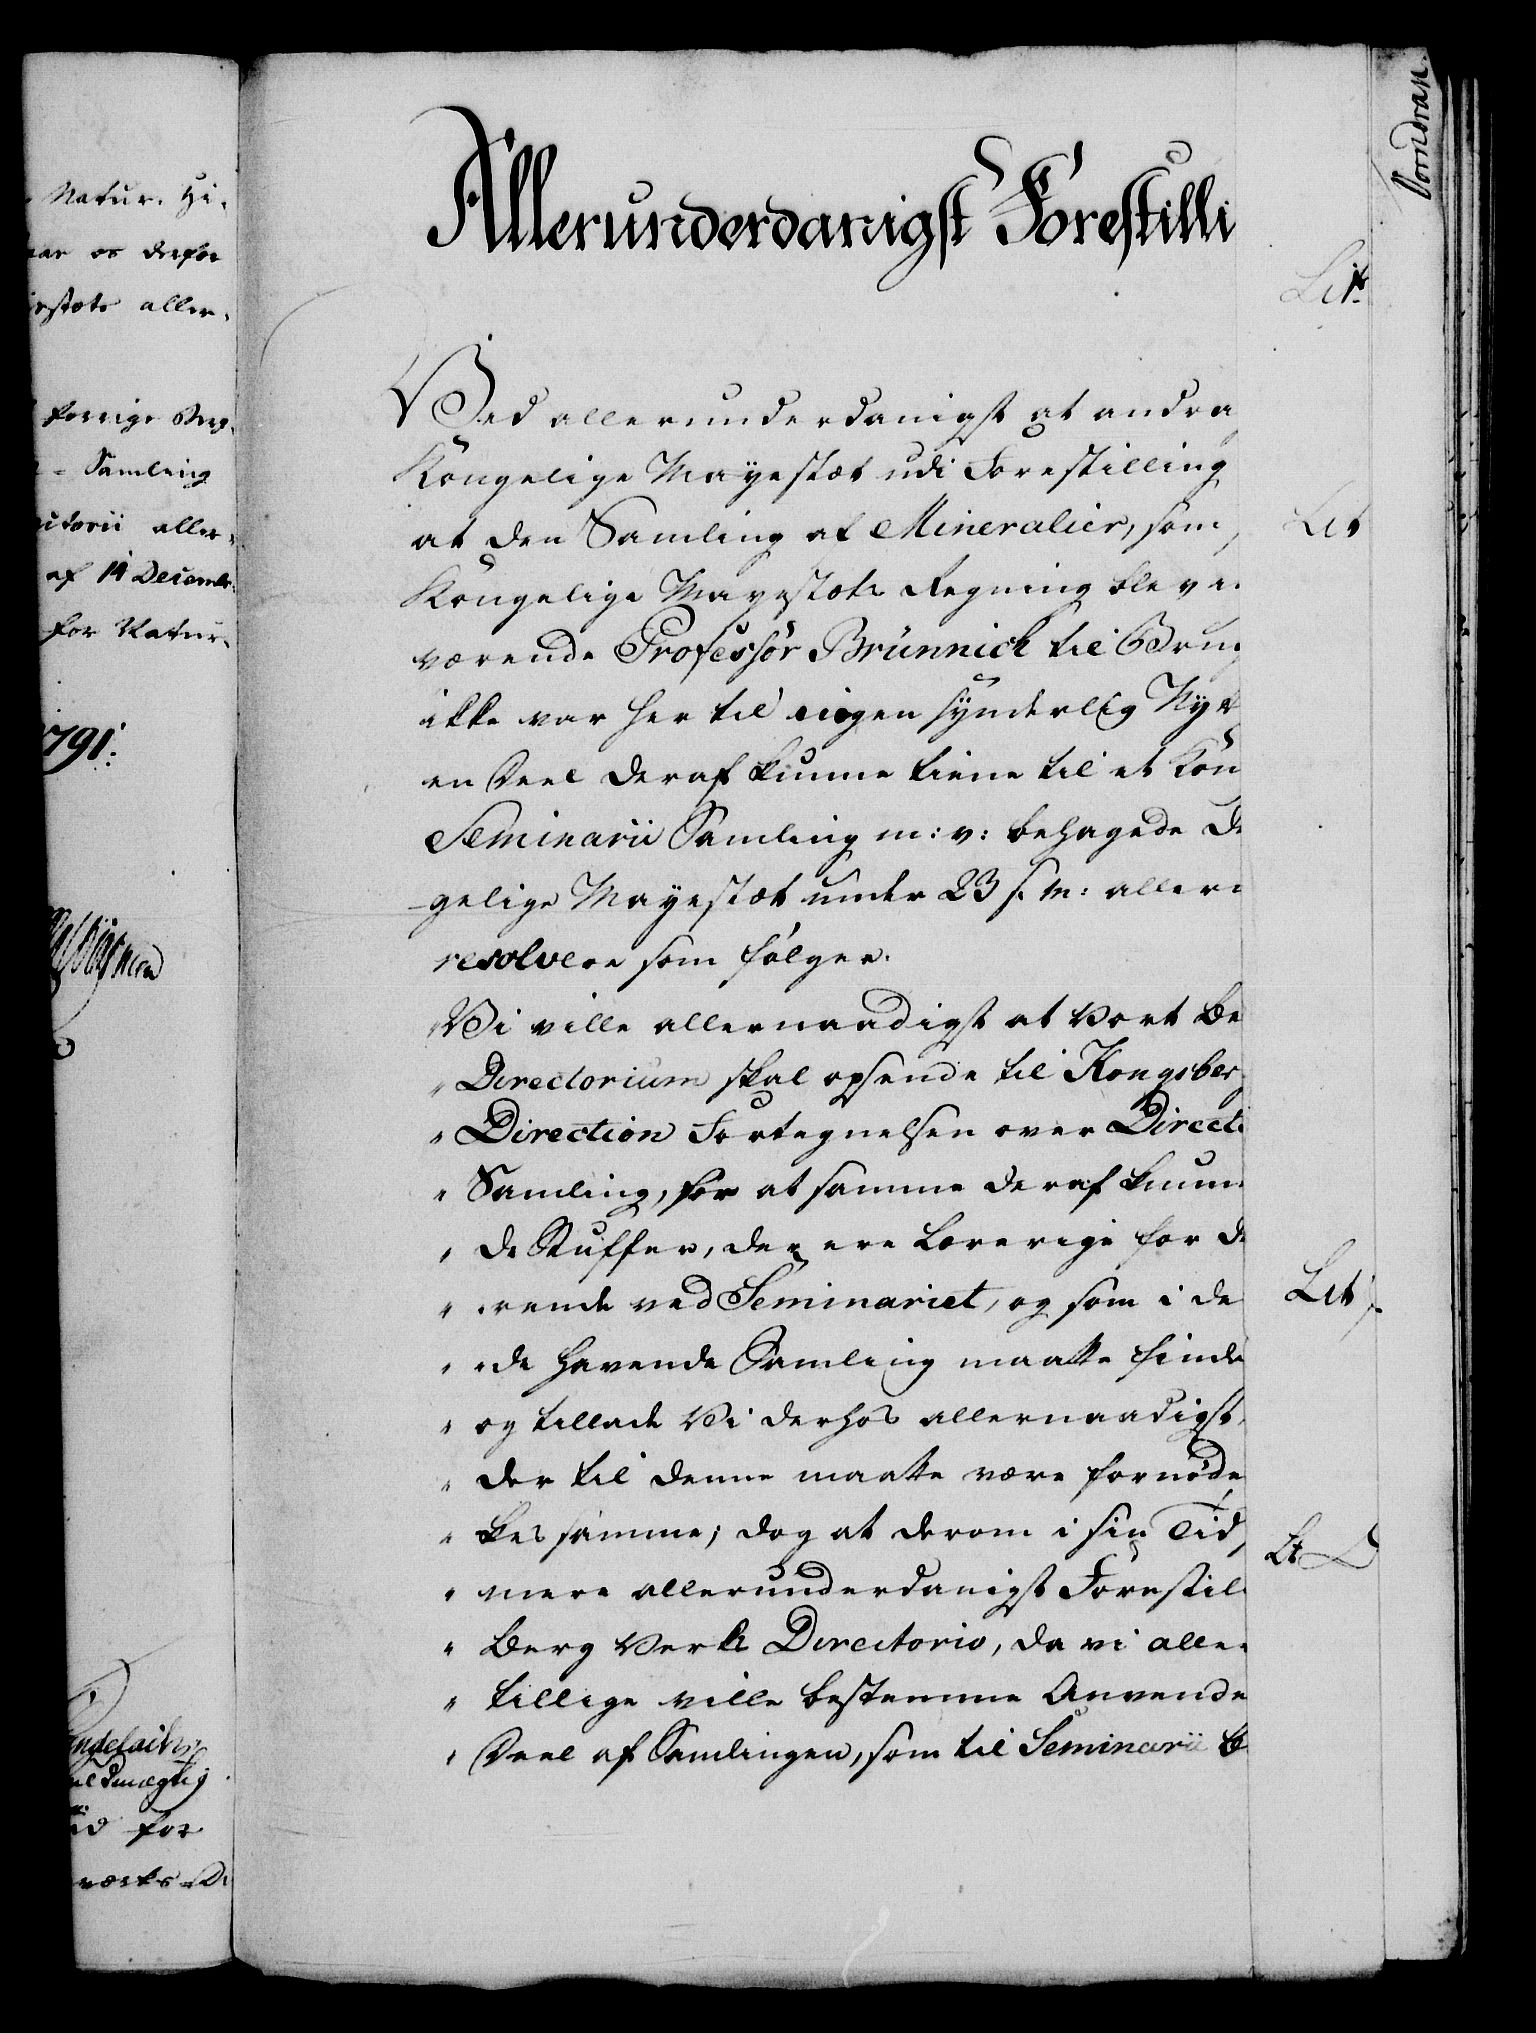 Natur. Hi-
os derfor
aller-
forrige
Samling
aller-
af 14 Decembr:
for Natur-
1791.
for
værks Di
Allerunderdanigst Forestilli
Ved allerunderdanigst at andra
Kongelige Mayestæt udi Forestilling
at den Samling af Mineralier, som
Kongelige Mayestæts Regning blev
værende Professor Brünnich til Brug
ikke var her til nogen synderlig Nytt
en Deel deraf kunne tiene til et Kon
Seminarii Samling m: v: behagede De
gelige Mayestæt under 23 f. M: aller
resolvere som følger.
„Vi ville allernaadigst at Vort Be
„Directorium skal opsende til Kongsber
„Direction Fortegnelsen over Directi
„Samling, for at samme deraf kunn
„de Stuffer, der ere Lærerige for de
„rende ved Seminariet, og som i de
„de havende Samling maatte finde
„og tillade Vi derhos allernaadigst,
„der til denne maatte være fornøde
„kes samme; dog at derom i sin Tid
„mere allerunderdanigst Forestil
„Berg Verks Directorio, da vi alle
„tillige ville bestemme Anvende
„Deel af Samlingen, som til Seminarii B
Lit
Lit
Lit
Lt D